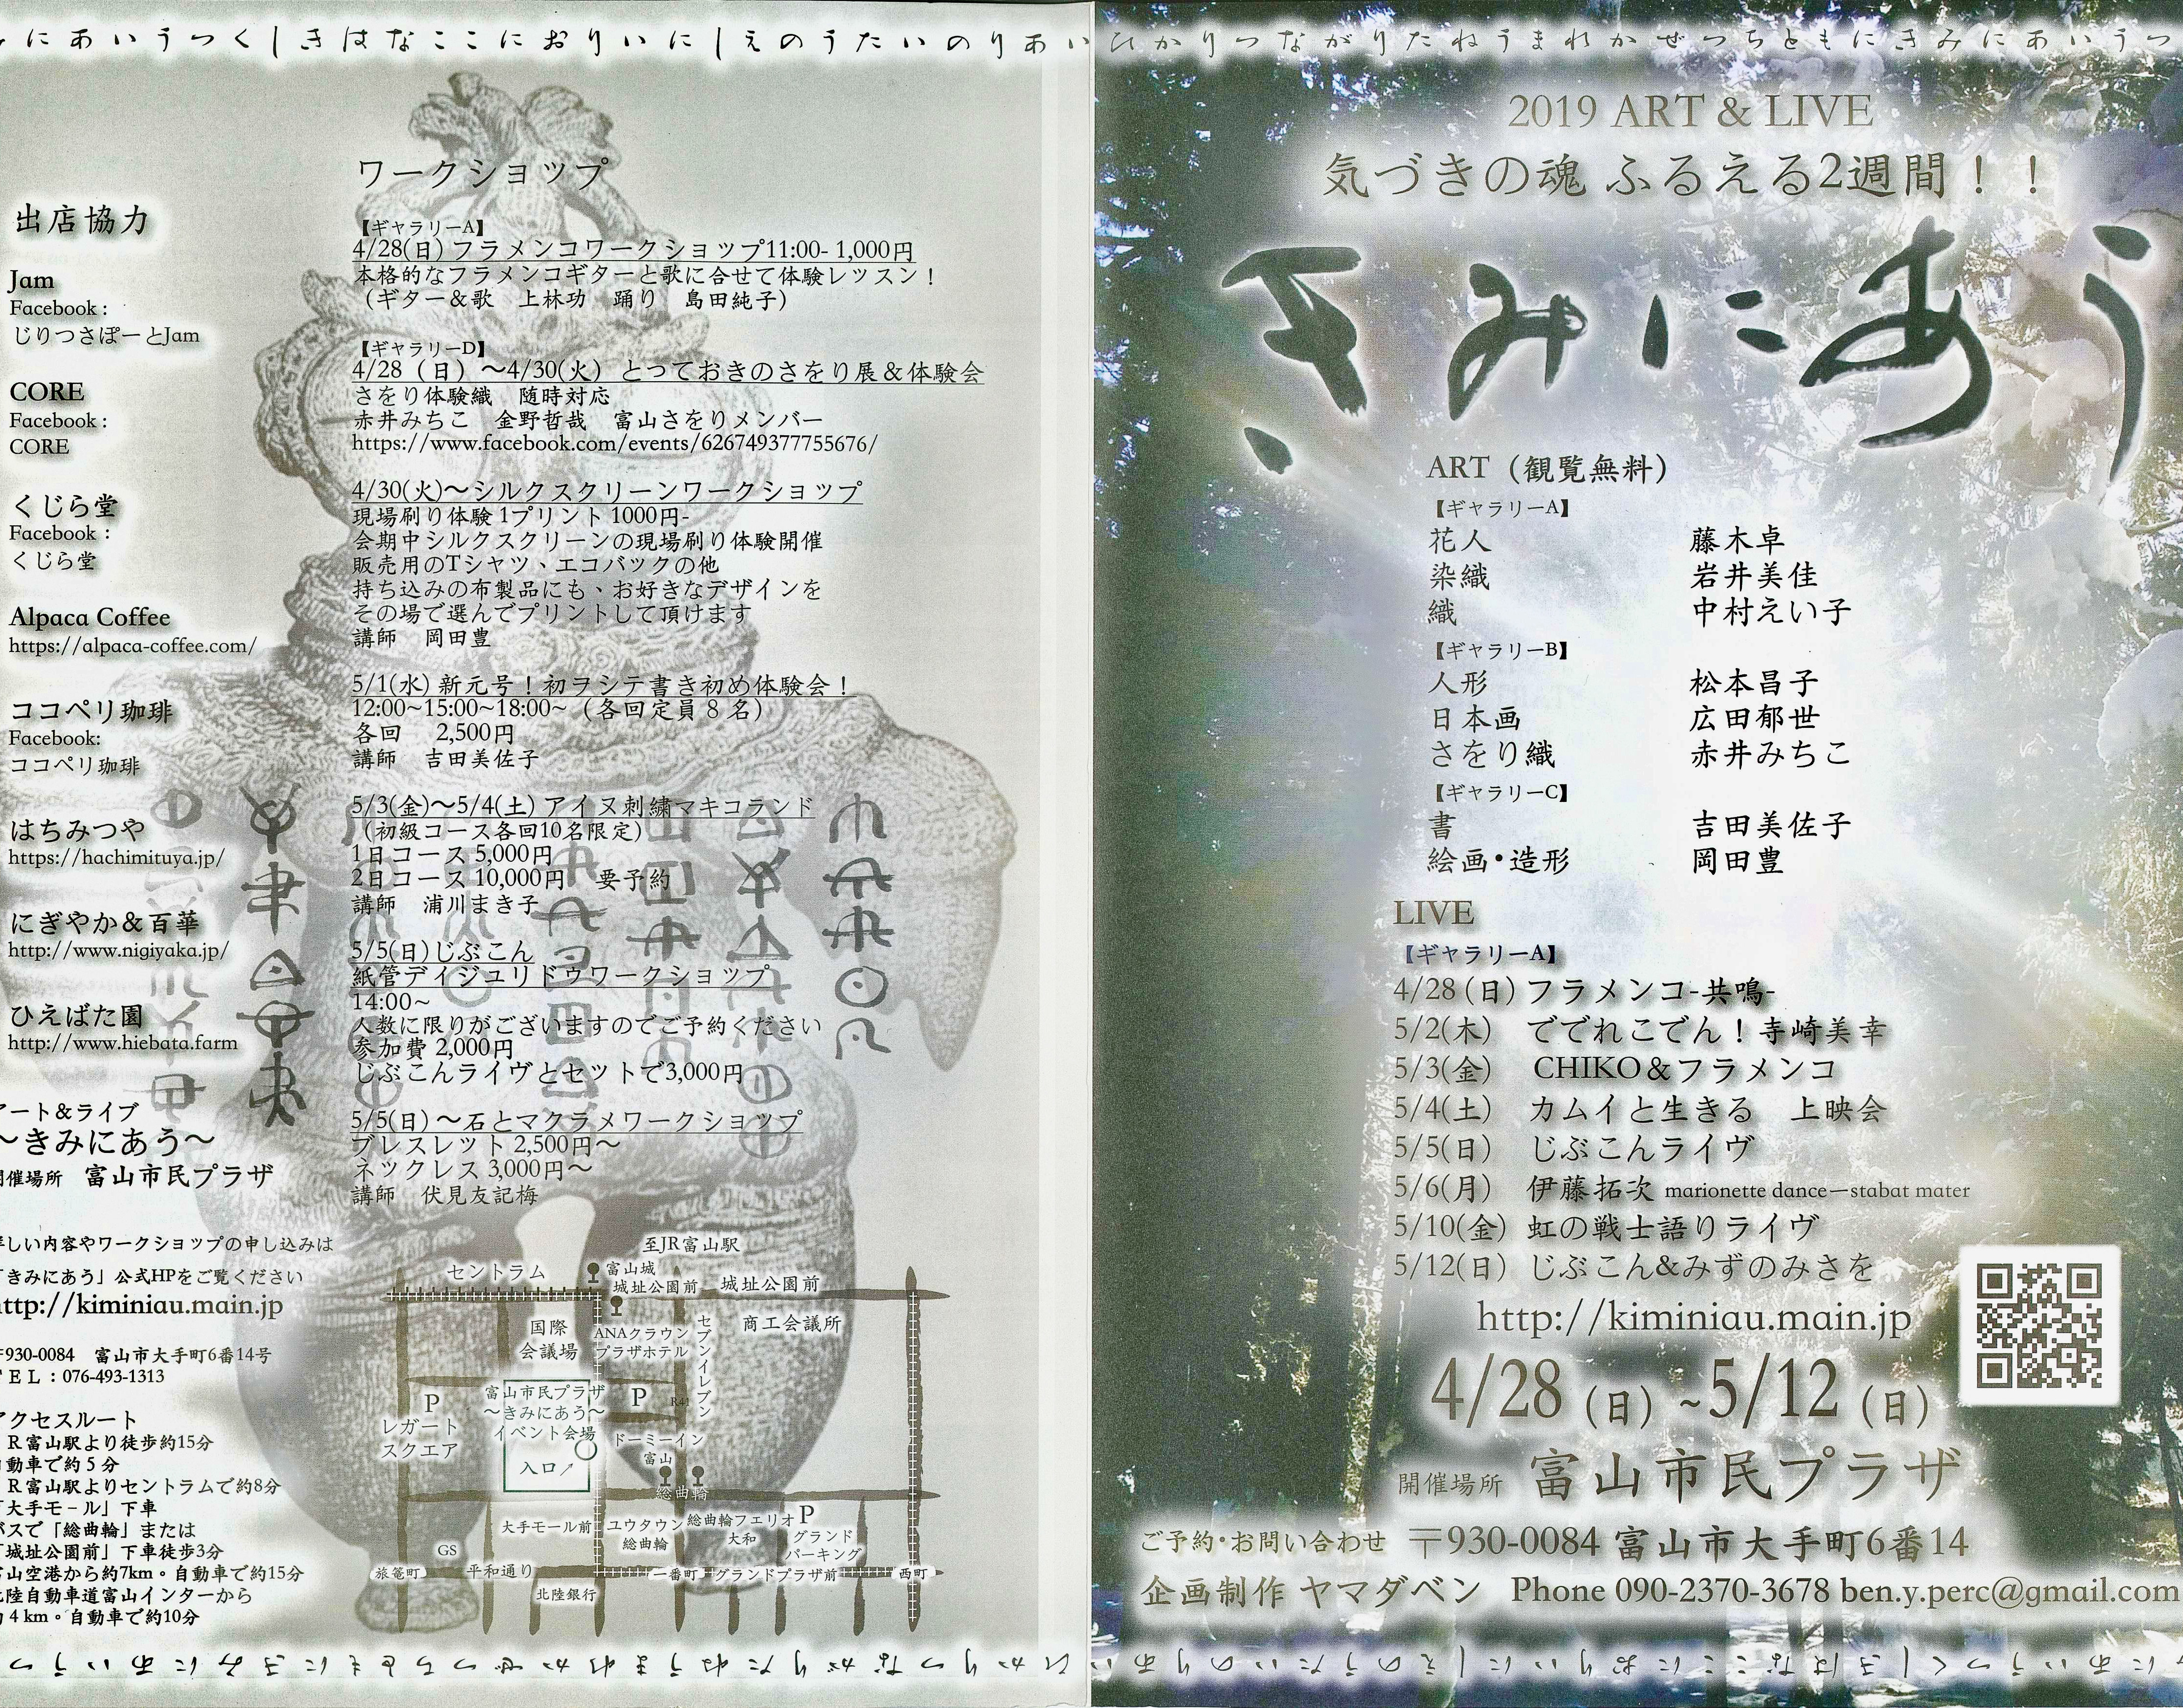 にあいうつくしきはなここにおりいにしえのうたいのりあい
ひかりつながりたねうまれかぜつちともにきみにあいうつ
出店協力
Jam
Facebook :
じりつさぽーとJam
CORE
Facebook :
CORE
くじら堂
Facebook :
くじら堂
Alpaca Coffee
https://alpaca-coffee.com/
ココペリ珈琲
Facebook:
ココペリ珈琲
はちみつや
https://hachimituya.jp/
にぎやか＆百華
http://www.nigiyaka.jp/
ひえばた園
http://www.hiebata.farm
アート＆ライブ
〜きみにあう〜
開催場所　富山市民プラザ
詳しい内容やワークショップの申し込みは
「きみにあう」公式HPをご覧ください
http://kiminiau.main.jp
〒930-0084　富山市大手町6番14号
ＴＥＬ：076-493-1313
アクセスルート
ＪＲ富山駅より徒歩約15分
自動車で約５分
ＪＲ富山駅よりセントラムで約8分
「大手モール」下車
バスで「総曲輪」または
「城址公園前」下車徒歩3分
富山空港から約7km。自動車で約15分
北陸自動車道富山インターから
約４km。自動車で約10分
ワークショップ
【ギャラリーA】
4/28(日) フラメンコワークショップ11:00- 1,000円
本格的なフラメンコギターと歌に合せて体験レッスン！
（ギター＆歌　上林功　踊り　島田純子）
【ギャラリーD】
4/28（日）〜4/30(火)　とっておきのさをり展＆体験会
さをり体験織　随時対応
赤井みちこ　金野哲哉　富山さをりメンバー
https://www.facebook.com/events/626749377755676/
4/30(火)〜シルクスクリーンワークショップ
現場刷り体験 1プリント 1000円-
会期中シルクスクリーンの現場刷り体験開催
販売用のTシャツ、エコバックの他
持ち込みの布製品にも、お好きなデザインを
その場で選んでプリントして頂けます
講師　岡田豊
5/1(水) 新元号！初ヲシテ書き初め体験会！
12:00~15:00~18:00~（各回定員８名）
各回　2,500円
講師　吉田美佐子
5/3(金)〜5/4(土) アイヌ刺繍マキコランド
（初級コース各回10名限定）
1日コース 5,000円
2日コース 10,000円　要予約
講師　浦川まき子
5/5(日) じぶこん
紙管デイジュリドウワークショップ
14:00~
人数に限りがございますのでご予約ください
参加費 2,000円
じぶこんライヴとセットで3,000円
5/5(日)〜石とマクラメワークショップ
ブレスレット 2,500円〜
ネックレス 3,000円〜
講師　伏見友記梅
至JR富山駅
セントラム
富山城
城址公園前
城址公園前
国際
会議場
ANAクラウン
プラザホテル
セブンイレブン
商工会議所
P
レガート
スクエア
富山市民プラザ
〜きみにあう〜
イベント会場
入口↗
P
R41
ドーミーイン
富山
総曲輪
大手モール前
ユウタウン
総曲輪
総曲輪フェリオ
大和
P
グランド
パーキング
GS
旅篭町
平和通り
北陸銀行
一番町
グランドプラザ前
西町
2019 ART & LIVE
気づきの魂 ふるえる2週間！！
きみにあう
ART（観覧無料）
【ギャラリーA】
花人　藤木卓
染織　岩井美佳
織　中村えい子
【ギャラリーB】
人形　松本昌子
日本画　広田郁世
さをり織　赤井みちこ
【ギャラリーC】
書　吉田美佐子
絵画・造形　岡田豊
LIVE
【ギャラリーA】
4/28 (日) フラメンコ-共鳴-
5/2(木)　ででれこでん！寺崎美幸
5/3(金)　CHIKO＆フラメンコ
5/4(土)　カムイと生きる　上映会
5/5(日)　じぶこんライヴ
5/6(月)　伊藤拓次 marionette dance—stabat mater
5/10(金)　虹の戦士語りライヴ
5/12(日)　じぶこん&みずのみさを
http://kiminiau.main.jp
4/28（日）~5/12（日）
開催場所　富山市民プラザ
ご予約・お問い合わせ　〒930-0084 富山市大手町6番14
企画制作 ヤマダベン　Phone 090-2370-3678 ben.y.perc@gmail.com
ひかりつながりたねうまれかぜつちともにきみにあいうつ
にあいうつくしきはなここにおりいにしえのうたいのりあい